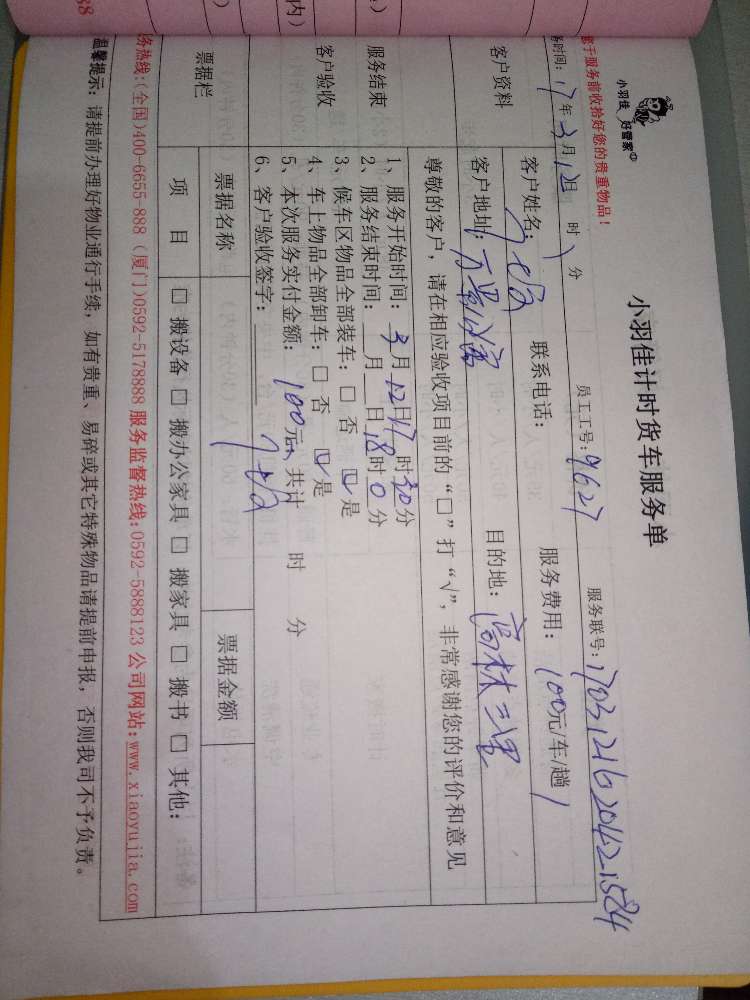 小羽佳 好管家
您于服务前收拾好您的贵重物品！
小羽佳计时货车服务单
务时间：17年3月12日 时 分 员工工号：9627 服务联号：170312162042-1584
客户资料
客户姓名： 联系电话： 服务费用：100元/车/趟
客户地址：万景公寓 目的地：高林二里
尊敬的客户，请在相应验收项目前的“□”打“√”，非常感谢您的评价和意见
服务结束
客户验收
1、服务开始时间：3月12日17时30分
2、服务结束时间： 月 日18时0分
3、候车区物品全部装车：□ 否 ☑ 是
4、车上物品全部卸车：□ 否 ☑ 是
5、本次服务实付金额：100元、共计 时 分
6、客户验收签字：
票据栏
票据名称 票据金额
项 目 □ 搬设备 □ 搬办公家具 □ 搬家具 □ 搬书 □ 其他：
务热线：(全国)400-6655-888 (厦门)0592-5178888 服务监督热线：0592-5888123 公司网站：www.xiaoyujia.com
温馨提示：请提前办理好物业通行手续，如有贵重、易碎或其它特殊物品请提前申报，否则我司不予负责。